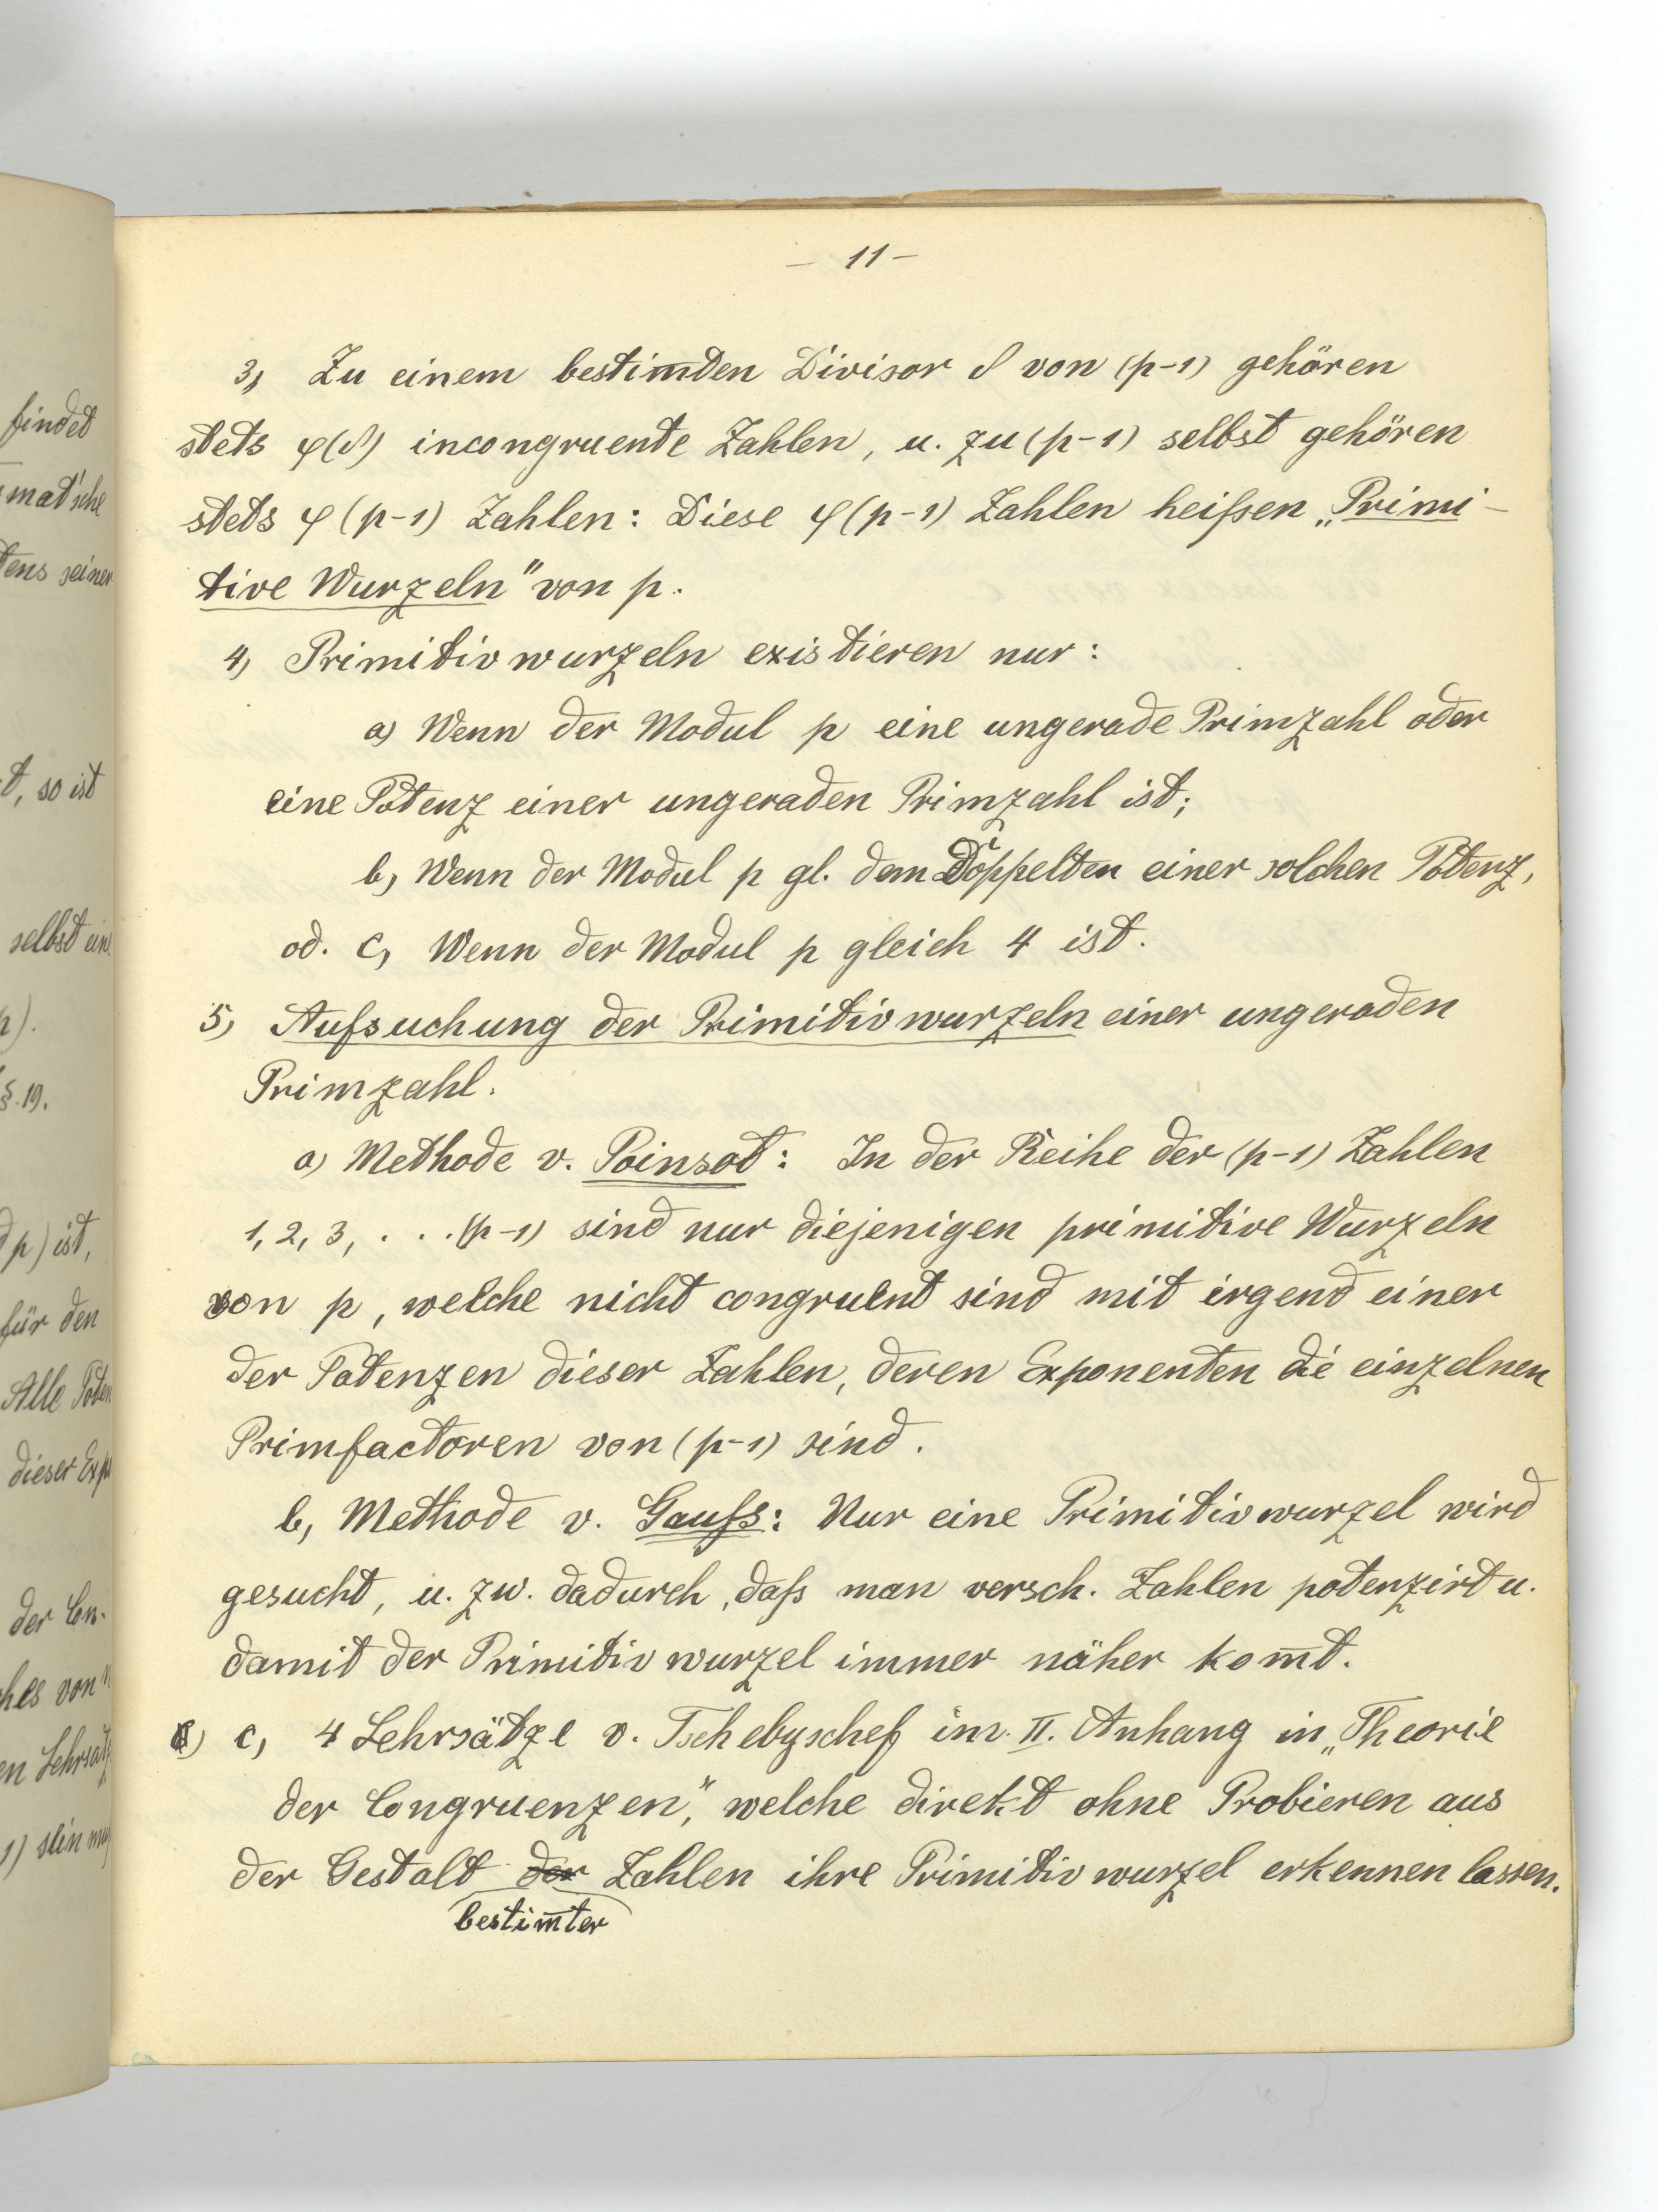 findet
mat'sche
tens seiner
t, so ist
selbst ein
§. 19.
p) ist,
für den
Alle Poten
dieser Exp
der Con-
ches von
en Lehrsät
1) sein
— 11 —
3, Zu einem bestim̅ten Divisor δ von (p-1) gehören
stets φ(δ) incongruente Zahlen, u. zu (p-1) selbst gehören
stets φ(p-1) Zahlen: Diese φ(p-1) Zahlen heißen „Primi-
tive Wurzeln" von p.
4, Primitivwurzeln existieren nur:
a) Wenn der Modul p eine ungerade Primzahl oder
eine Potenz einer ungeraden Primzahl ist;
b, Wenn der Modul p gl. dem Doppelten einer solchen Potenz,
od. c, Wenn der Modul p gleich 4 ist.
5, Aufsuchung der Primitivwurzeln einer ungeraden
Primzahl.
a) Methode v. Poinsot: In der Reihe der (p-1) Zahlen
1, 2, 3, . . . (p-1) sind nur diejenigen primitive Wurzeln
von p, welche nicht congruent sind mit irgend einer
der Potenzen dieser Zahlen, deren Exponenten die einzelnen
Primfactoren von (p-1) sind.
b, Methode v. Gauß: Nur eine Primitivwurzel wird
gesucht, u. zw. dadurch, daß man versch. Zahlen potenzirt u.
damit der Primitivwurzel immer näher kom̅t.
c, 4 Lehrsätze v. Tschebyschef im II. Anhang in „Theorie
der Congruenzen," welche direkt ohne Probieren aus
der Gestalt der Zahlen ihre Primitivwurzel erkennen lassen.
bestim̅ter